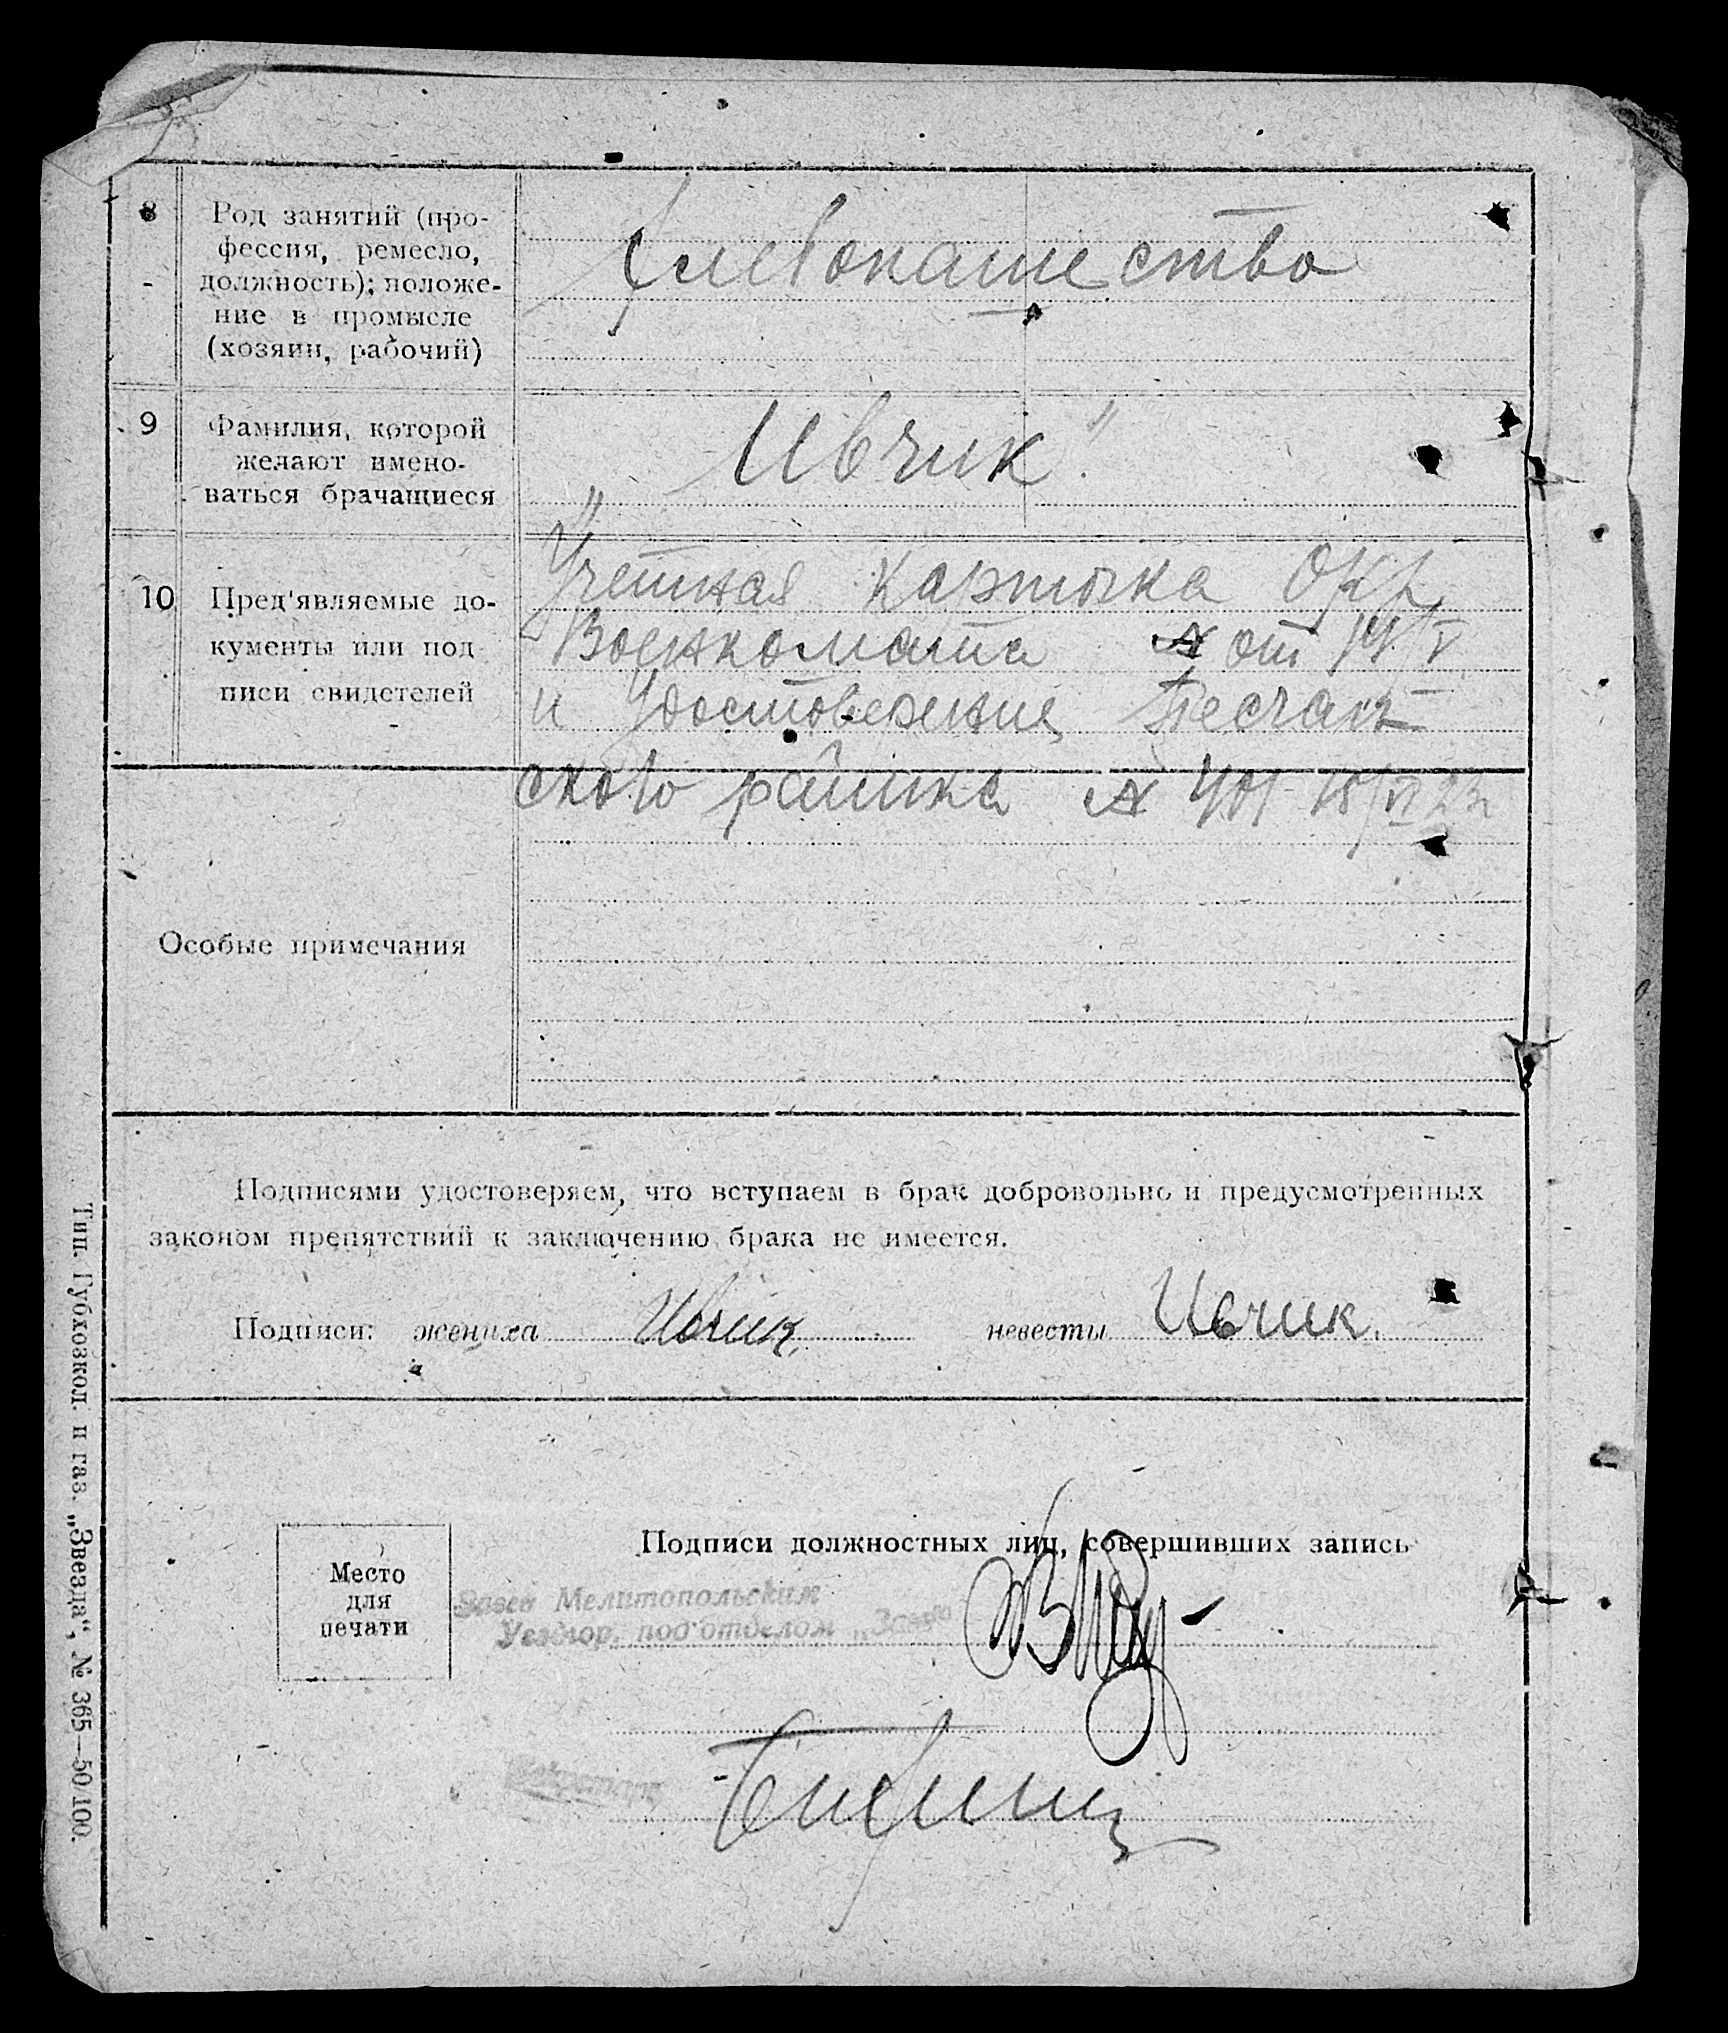 8
Род занятий (про-
фессия, ремесло,
должность); положе-
ние в промысле
(хозяин, рабочий)
Хлебопашество
9
Фамилия, которой
желают имено-
ваться брачащиеся
"Ивчик".
10
Пред'являемые до-
кументы или под
писи свидетелей
Учетная карточка Окр
Военкомата № от 14/V
и Удостоверения Песчан
ского райика № 401 18/VI 23
Особые примечания
Подписями удостоверяем, что вступаем в брак добровольно и предусмотренных
законом препятствий к заключению брака не имеется.
Подписи: жениха Ивчик. невесты Ивчик.
Подписи должностных лиц, совершивших запись
Место
для
печати
Завед Мелитопольским
Уездгор. под'отделом „Загс"
Секретарь
Тип. Губхозкол. и газ. „Звезда", № 365—50/100.